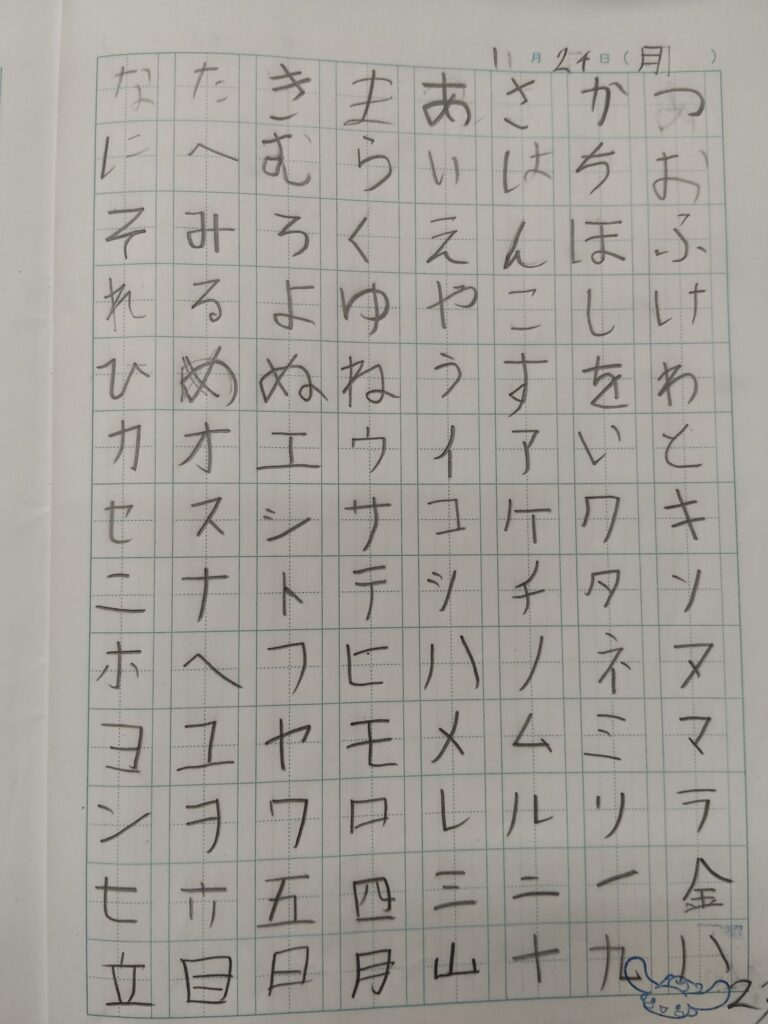 11月24日(月)
つかさあまきたな
おちはいらむへに
ふほんえくろみそ
けしこやゆよるれ
わをすうねぬめひ
といアイウエオカ
キクケコサシスセ
ソタチツテトナニ
ヌネノハヒフヘホ
マミムメモヤユヨ
ラリルレロワヲン
金一二三四五六七
八九十山月日目立